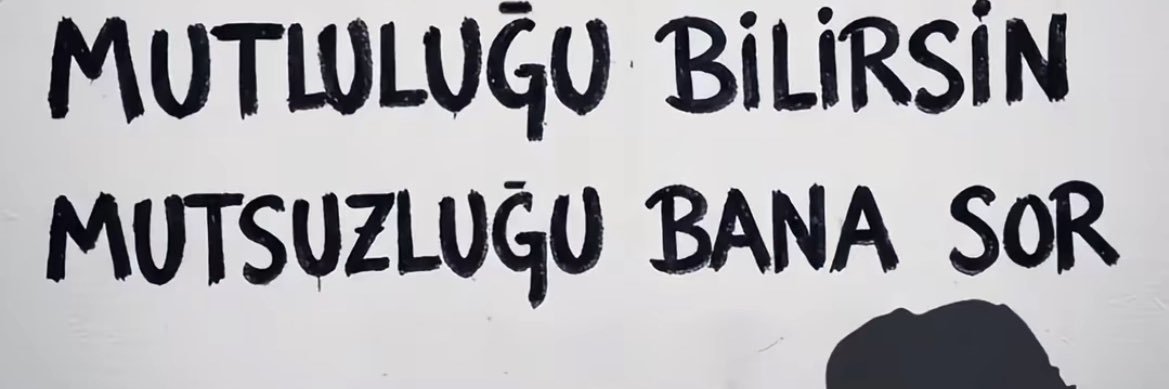 MUTLULUĞU BİLİRSİN
MUTSUZLUĞU BANA SOR